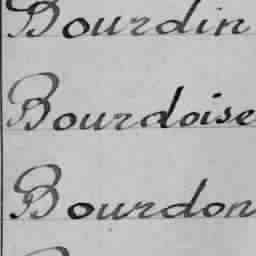 Bourdin
Bourdoise
Bourdon